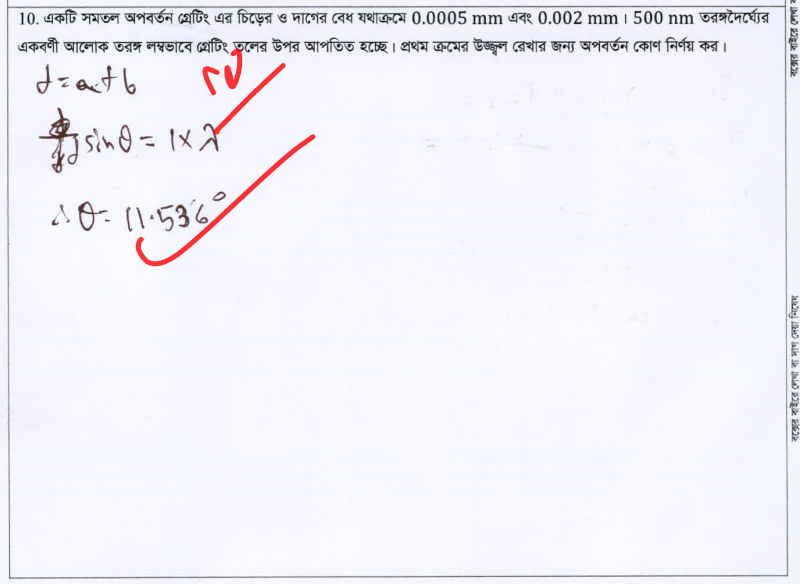 10. একটি সমতল অপবর্তন গ্রেটিং এর চিড়ের ও দাগের বেধ যথাক্রমে 0.0005 mm এবং 0.002 mm। 500 nm তরঙ্গদৈর্ঘ্যের
একবর্ণী আলোক তরঙ্গ লম্বভাবে গ্রেটিং তলের উপর আপতিত হচ্ছে। প্রথম ক্রমের উজ্জ্বল রেখার জন্য অপবর্তন কোণ নির্ণয় কর।
d = a + b
d sinθ = 1 × λ
∴ θ = 11.536°
বক্সের বাইরে লেখা বা দাগ দেয়া নিষেধ
বক্সের বাইরে লেখা ব